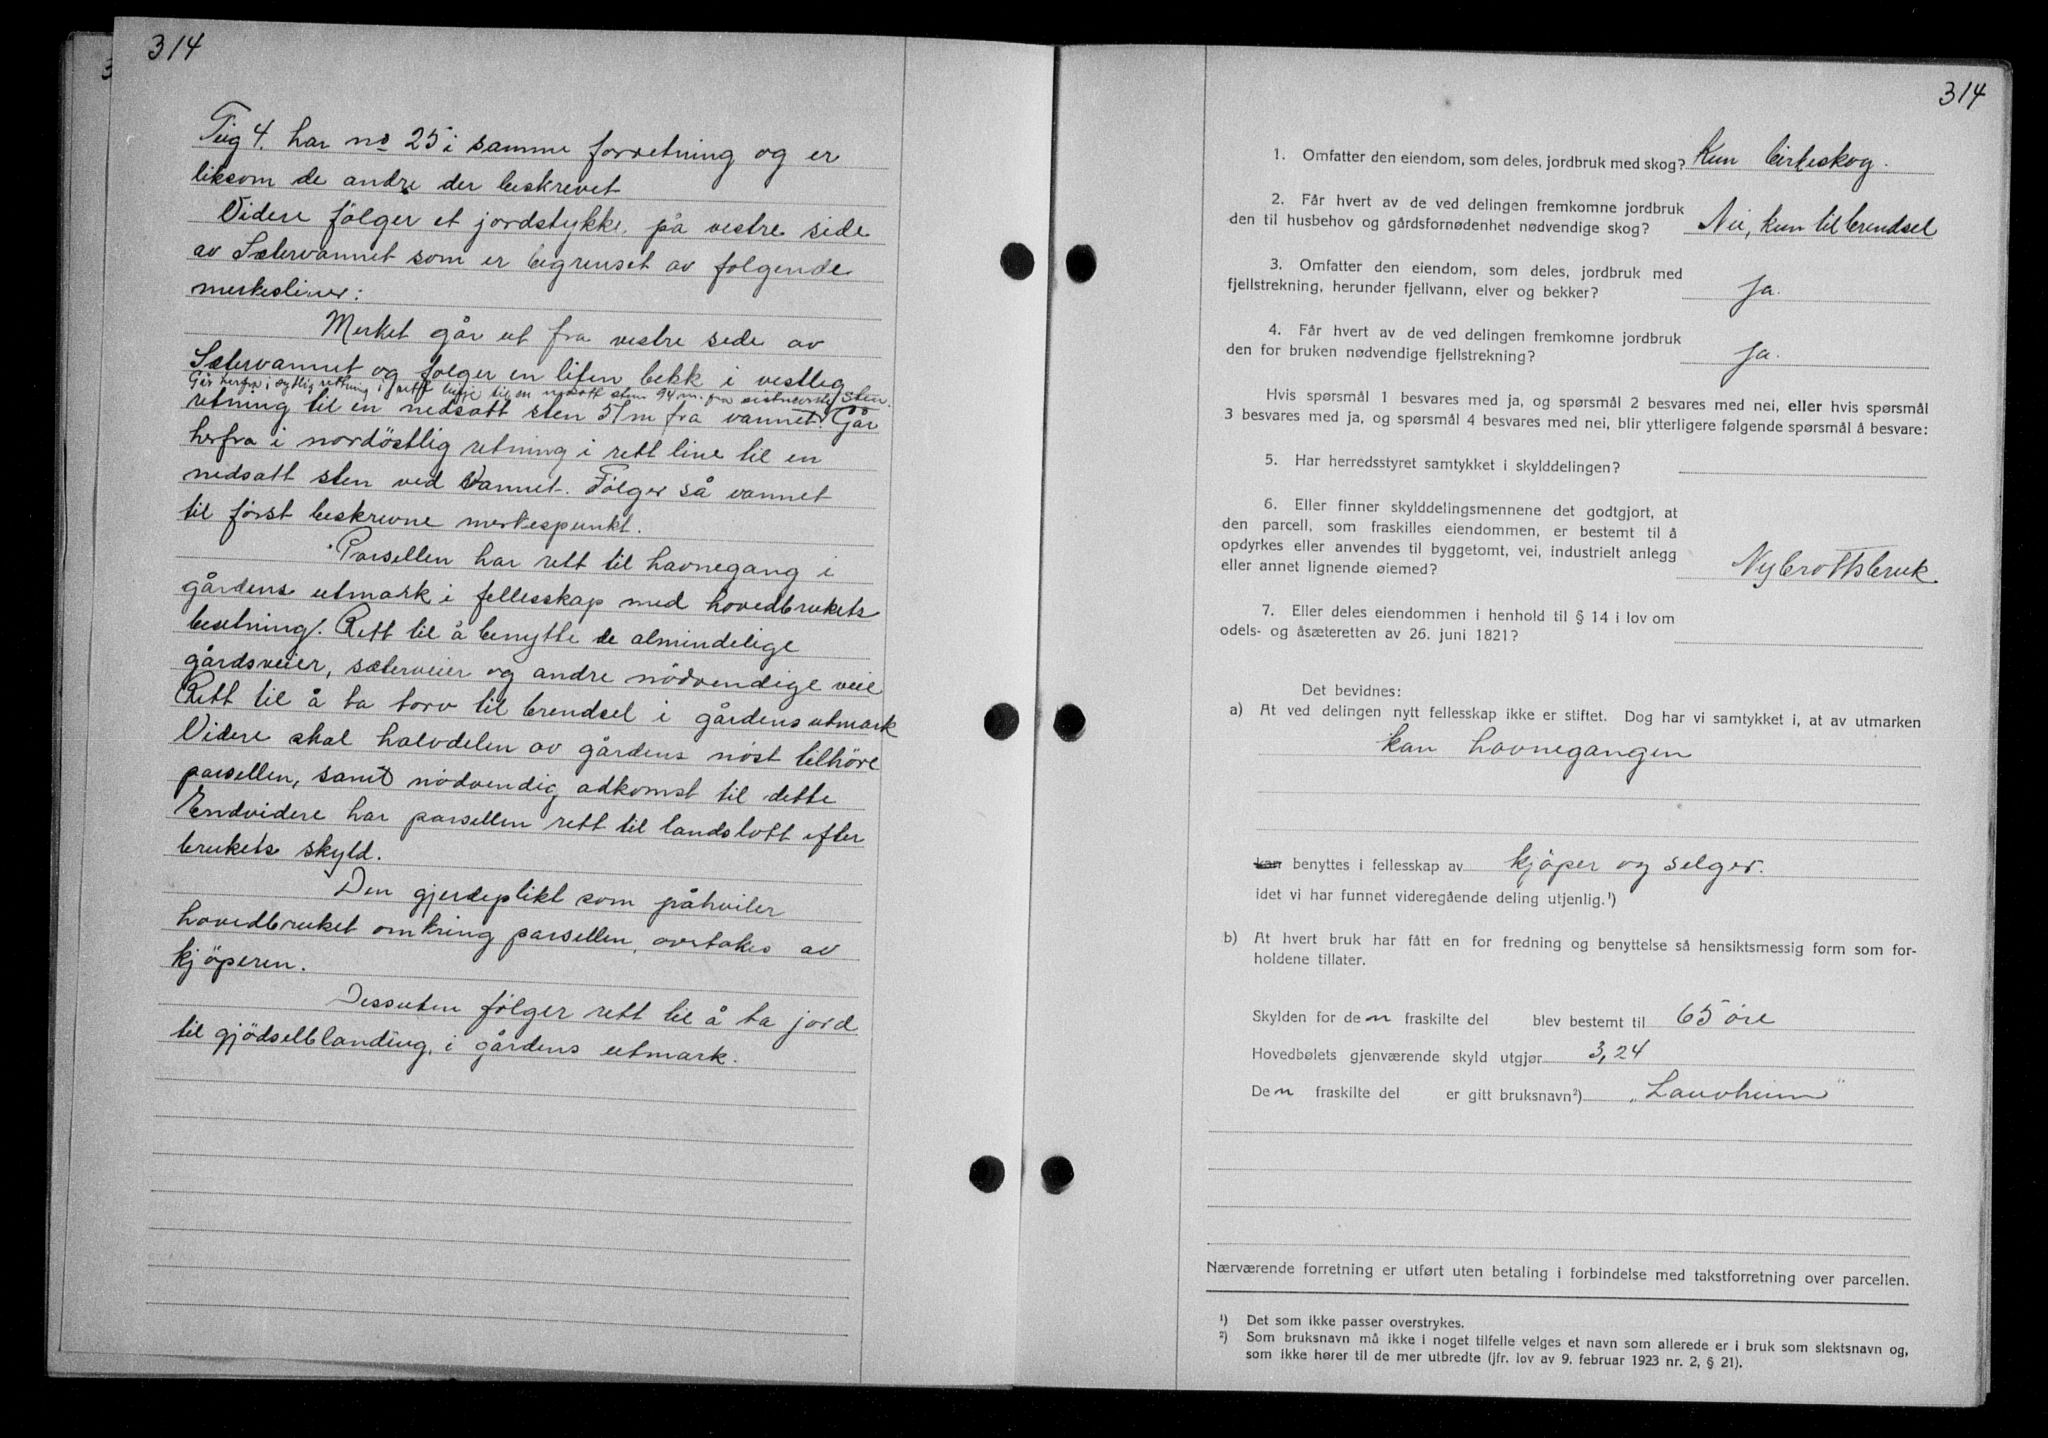 314
Teig 4. har no 25 i samme forretning og er
liksom de andre der beskrevet
Videre følger et jordstykke på vestre side
av Sætervannet som er begrenset av følgende
merkesliner:
Merket går ut fra vestre side av
Sætervannet og følger en liten bekk i vestlig
Går herfra i sydlig retning i rett linje til en nedsatt sten 94 m. fra sistnevnte sten.
retning til en nedsatt sten 51 m fra vannet. Går
herfra i nordöstlig retning i rett line til en
nedsatt sten ved Vannet. Følger så vannet
til først beskrevne merkespunkt.
Parsellen har rett til havnegang i
gårdens utmark i fellesskap med hovedbrukets
besetning. Rett til å benytte de almindelige
gårdsveier, sæterveier og andre nödvendige veie
Rett til å ta torv til brendsel i gårdens utmark
Videre skal halvdelen av gårdens nöst tilhöre
parsellen, samt nödvendig adkomst til dette
Endvidere har parsellen rett til landslott efter
brukets skyld.
Den gjerdeplikt som påhviler
hovedbruket omkring parsellen, overtakes av
kjöperen.
Dessuten følger rett til å ta jord
til gjödselblanding, i gårdens utmark.
314
1. Omfatter den eiendom, som deles, jordbruk med skog? Kun birkeskog.
2. Får hvert av de ved delingen fremkomne jordbruk
den til husbehov og gårdsfornødenhet nødvendige skog? Nei, kun til brendsel
3. Omfatter den eiendom, som deles, jordbruk med
fjellstrekning, herunder fjellvann, elver og bekker? Ja.
4. Får hvert av de ved delingen fremkomne jordbruk
den for bruken nødvendige fjellstrekning? Ja.
Hvis spørsmål 1 besvares med ja, og spørsmål 2 besvares med nei, eller hvis spørsmål
3 besvares med ja, og spørsmål 4 besvares med nei, blir ytterligere følgende spørsmål å besvare:
5. Har herredsstyret samtykket i skylddelingen?
6. Eller finner skylddelingsmennene det godtgjort, at
den parcell, som fraskilles eiendommen, er bestemt til å
opdyrkes eller anvendes til byggetomt, vei, industrielt anlegg
eller annet lignende øiemed? Nybrottsbruk
7. Eller deles eiendommen i henhold til § 14 i lov om
odels- og åsæteretten av 26. juni 1821?
Det bevidnes:
a) At ved delingen nytt fellesskap ikke er stiftet. Dog har vi samtykket i, at av utmarken
kan havnegangen
kan benyttes i fellesskap av kjøper og selger.
idet vi har funnet videregående deling utjenlig.¹)
b) At hvert bruk har fått en for fredning og benyttelse så hensiktsmessig form som for-
holdene tillater.
Skylden for den fraskilte del blev bestemt til 65 öre
Hovedbølets gjenværende skyld utgjør 3,24
Den fraskilte del er gitt bruksnavn²) „Lauvheim"
Nærværende forretning er utført uten betaling i forbindelse med takstforretning over parcellen.
¹) Det som ikke passer overstrykes.
²) Som bruksnavn må ikke i noget tilfelle velges et navn som allerede er i bruk som slektsnavn og,
som ikke hører til de mer utbredte (jfr. lov av 9. februar 1923 nr. 2, § 21).